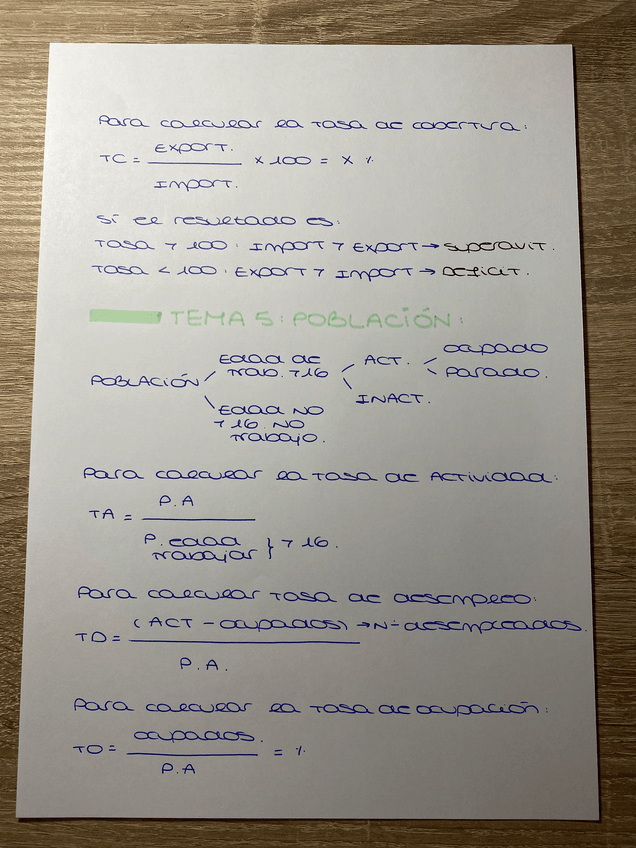 Para calcular la Tasa de cobertura:
TC = Export. / Import. × 100 = x %
Si el resultado es:
Tasa > 100: Import > Export → superavit.
Tasa < 100: Export > Import → Deficit.
TEMA 5: POBLACIÓN:
Edad de Trab. > 16
POBLACIÓN
ACT.
ocupado
parado.
INACT.
Edad NO
> 16. NO
Trabajo.
Para calcular la Tasa de Actividad:
TA = P.A / P. edad Trabajar } > 16.
Para calcular Tasa de desempleo:
TD = (ACT - ocupados) → Nº desempleados. / P.A.
Para calcular la Tasa de ocupación:
TO = ocupados. / P.A = %